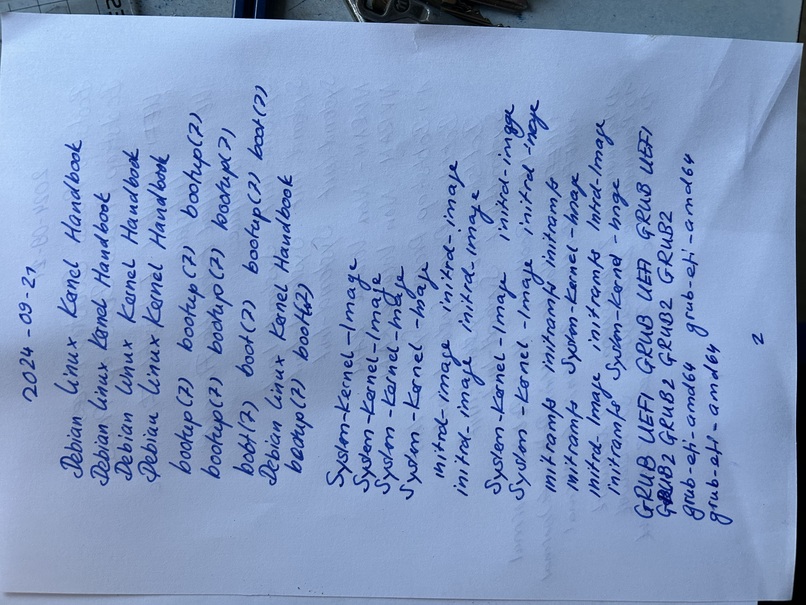 2024-09-21
Debian Linux Kernel Handbook
Debian Linux Kernel Handbook
Debian Linux Kernel Handbook
Debian Linux Kernel Handbook
bootup(7) bootup(7) bootup(7)
bootup(7) bootup(7) bootup(7)
boot(7) boot(7) bootup(7) boot(7)
Debian Linux Kernel Handbook
bootup(7) boot(7)
System-Kernel-Image
System-Kernel-Image
System-Kernel-Image
System-Kernel-Image
initrd-image initrd-image
initrd-image initrd-image
System-Kernel-Image initrd-image
System-Kernel-Image initrd-image
initramfs initramfs initramfs
initramfs System-Kernel-Image
initrd-Image initramfs Intrd-Image
initramfs System-Kernel-Image
GRUB UEFI GRUB UEFI GRUB UEFI
GRUB2 GRUB2 GRUB2 GRUB2
grub-efi-amd64 grub-efi-amd64
grub-efi-amd64
2